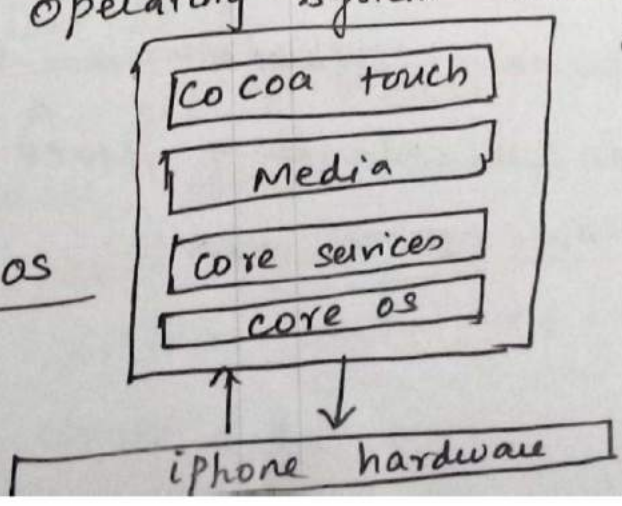 Operating system
cocoa touch
Media
core services
os
core os
iphone hardware